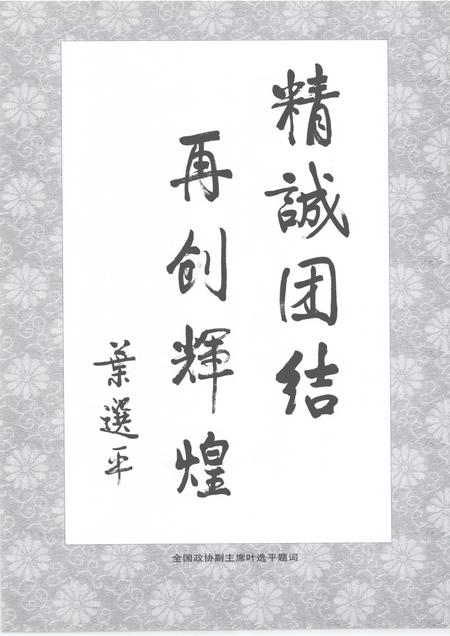 精誠团结
再创輝煌
葉選平
全国政协副主席叶选平题词